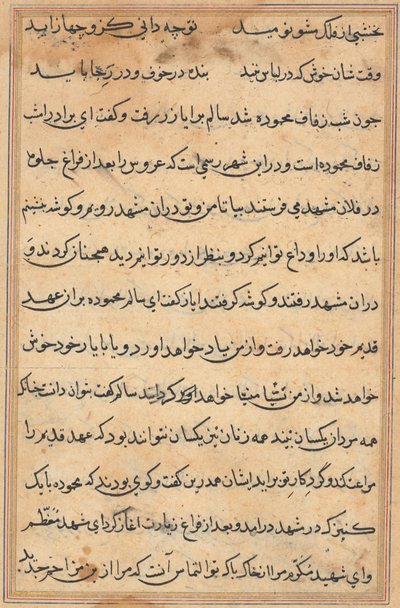 نخشبی از فلک مشو نومید تو چه دانی کزو چها زاید
وقت شان خوش که در لباس نیند بنده در خوف و در رجا باید
جون شب زفاف محموده شد سالم برایاز رفت و کفت ای برادر امشب
زفاف محموده است و درین شهر رسمی است که عروس را بعد از فراغ جلوه
در فلان مشهد می فرستند بیا تا من و تو دران مشهد رویم و کوشه بنشینم
باشد که او را وداع توانیم کرد و بنظر از دور توانیم دید همچنان کردند و
دران مشهد رفتند و کوشه کرفتند ایاز کفت ای سالم محموده بر از عهد
قدیم خود خواهد رفت و از من یاد خواهد اورد و یا با یار خود خوش
خواهد شد و از من خواهد کردانید سالم کفت نتوان دانست جنانک
همه مردان یکسان نیند همه زنان نیز یکسان نتوانند بود که عهد قدیم را
مراعت کند و کرد کار تو براید ایشان همدرین کفت و کوی بودند که محموده با یک
کنیزک در مشهد درامد و بعد از فراغ زیارت اغاز کرد ای شهید معظم
و ای شهید مکرم مرا از خاک پاک تو التماس آنست که مرا از من جدید